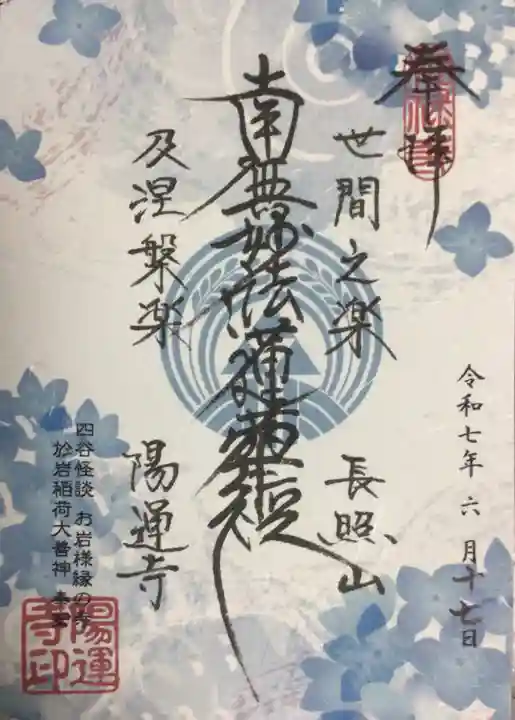 奉拝
世間之楽
長照山
南無妙法蓮華経
及涅槃楽
陽運寺
令和七年 六月十七日
四谷怪談 お岩様縁の寺
於岩稲荷大善神
陽運寺印